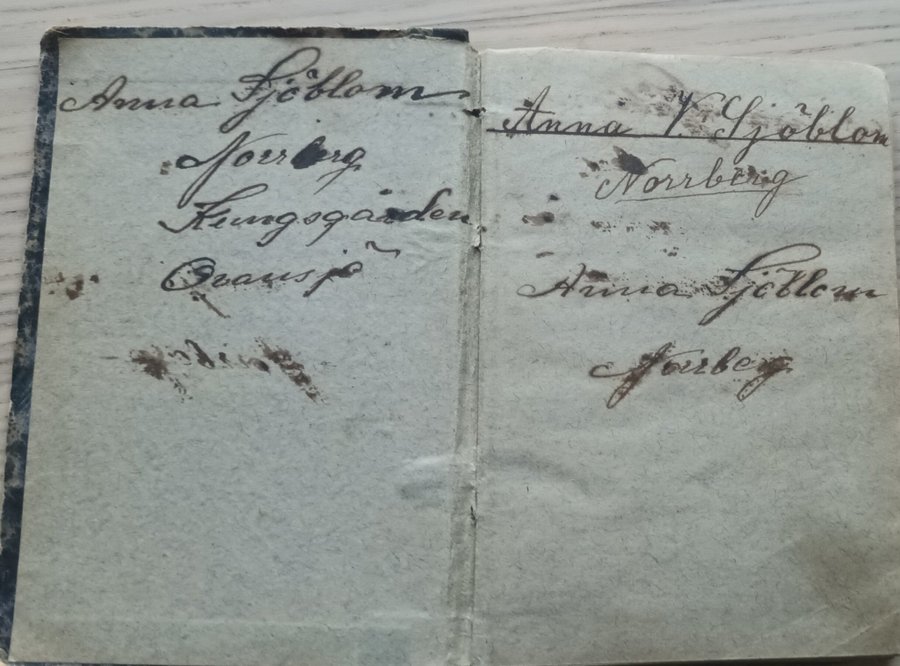 Anna Sjöblom
Norrberg
Kungsgården
Ovansjö
Anna V. Sjöblom
Norrberg
Anna Sjöblom
Norrberg